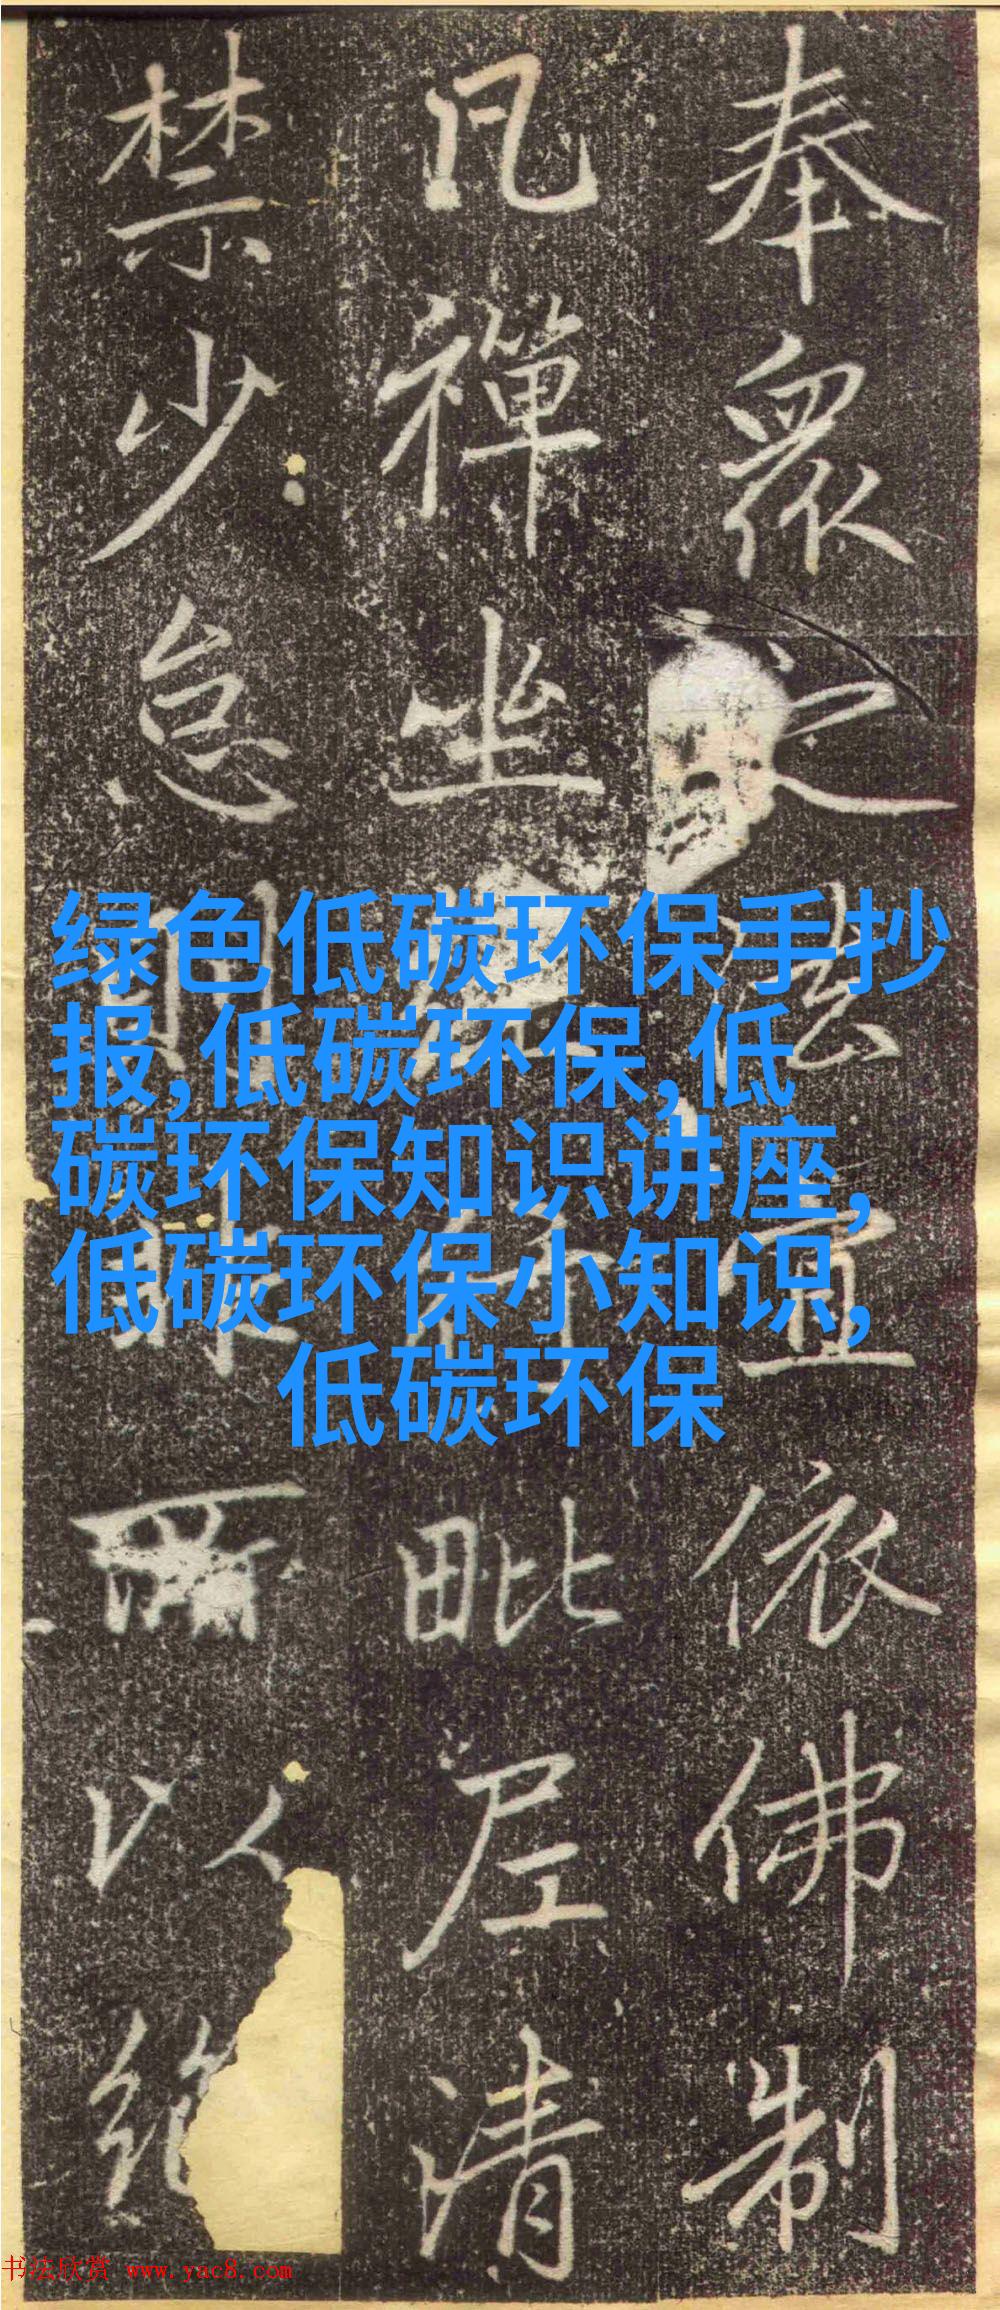 奉眾之法宜依佛制
凡禪坐毗尼清
禁少怠以
绿色低碳环保手抄
报,低碳环保,低
碳环保知识讲座,
低碳环保小知识,
低碳环保
书法欣赏 www.yac8.com